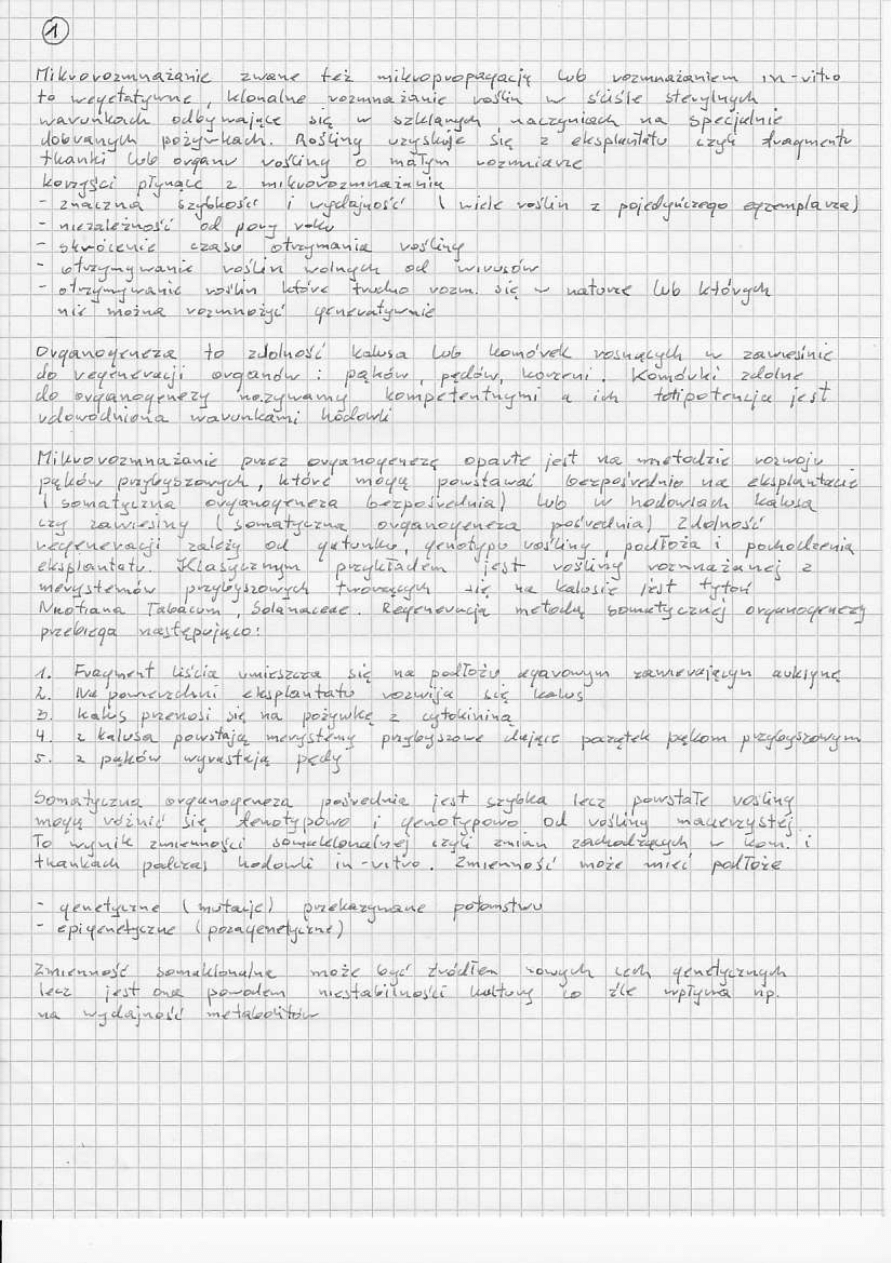 1
Mikrorozmnażanie zwane też mikropropagacją lub rozmnażaniem in-vitro
to wegetatywne, klonalne rozmnażanie roślin w ściśle sterylnych
warunkach odbywające się w szklanych naczyniach na specjalnie
dobranych pożywkach. Rośliny uzyskuje się z eksplantatu czyli fragmentu
tkanki lub organu rośliny o małym rozmiarze
korzyści płynące z mikrorozmnażania
- znaczna szybkość i wydajność (wiele roślin z pojedyńczego egzemplarza)
- niezależność od pory roku
- skrócenie czasu otrzymania rośliny
- otrzymywanie roślin wolnych od wirusów
- otrzymywanie roślin które trudno rozm. się w naturze lub których
nie można rozmnożyć generatywnie
Organogeneza to zdolność kalusa lub komórek rosnących w zawiesinie
do regeneracji organów: pąków, pędów, korzeni. Komórki zdolne
do organogenezy nazywamy kompetentnymi a ich totipotencja jest
udowodniona warunkami hodowli
Mikrorozmnażanie przez organogenezę oparte jest na metodzie rozwoju
pąków przybyszowych, które mogą powstawać bezpośrednio na eksplantacie
(somatyczna organogeneza bezpośrednia) lub w hodowlach kalusa
czy zawiesiny (somatyczna organogeneza pośrednia) Zdolność
regeneracji zależy od gatunku, genotypu rośliny, podłoża i pochodzenia
eksplantatu. Klasycznym przykładem jest rośliny rozmnażanej z
merystemów przybyszowych tworzących się na kalusie jest tytoń
Nicotiana Tabacum, Solanaceae. Regeneracja metodą somatycznej organogenezy
przebiega następująco:
1. Fragment liścia umieszcza się na podłożu agarowym zawierającym auksynę
2. Na powierzchni eksplantatu rozwija się kalus
3. kalus przenosi się na pożywkę z cytokininą
4. z kalusa powstają merystemy przybyszowe dając początek pąkom przybyszowym
5. z pąków wyrastają pędy
Somatyczna organogeneza pośrednia jest szybka lecz powstałe rośliny
mogą różnić się fenotypowo i genotypowo od rośliny macierzystej.
To wynik zmienności somaklonalnej czyli zmian zachodzących w kom. i
tkankach podczas hodowli in-vitro. Zmienność może mieć podłoże
- genetyczne (mutacje) przekazywane potomstwu
- epigenetyczne (pozagenetyczne)
Zmienność somaklonalna może być źródłem nowych cech genetycznych
lecz jest ona powodem niestabilności kultury co źle wpływa np.
na wydajność metabolitów